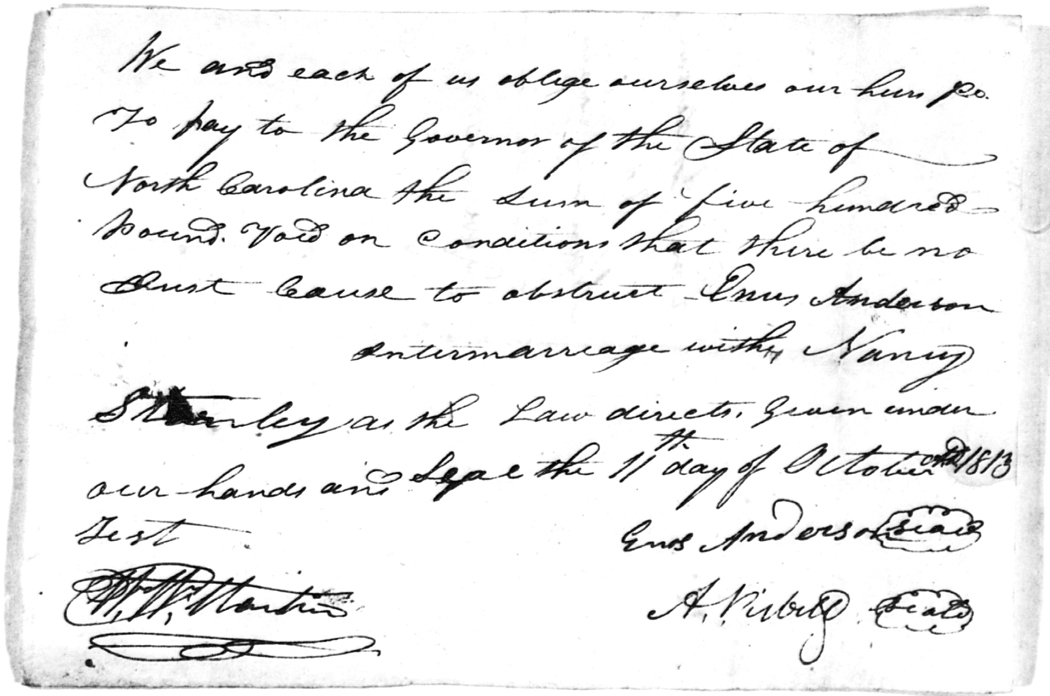 We and each of us oblige ourselves our heirs &c.
To pay to the Governor of the State of
North Carolina the sum of five hundred
Pound. Void on Conditions that there be no
Just Cause to obstruct Enus Anderson
intermarreage with Nancy
Stanley as the Law directs. Given under
our hands and Seal the 11th day of October 1813
Test Enos Anderson seald
W. W. Martin A. seald